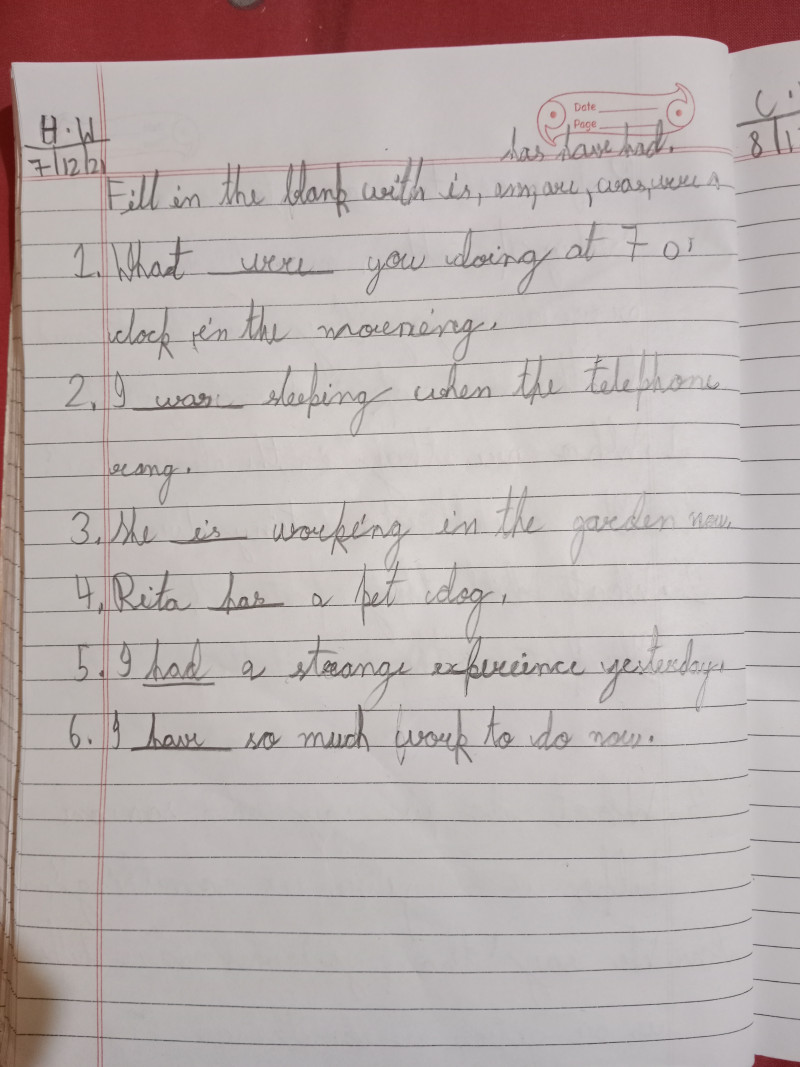 H.W
7/12/21
Date
Page
has have had.
Fill in the blank with is, am, are, was, were
1. What were you doing at 7 o'
clock in the morning.
2. I was sleeping when the telephone
rang.
3. She is working in the garden now.
4. Rita has a pet dog.
5. I had a strange experience yesterday.
6. I have so much work to do now.
C.
8/1